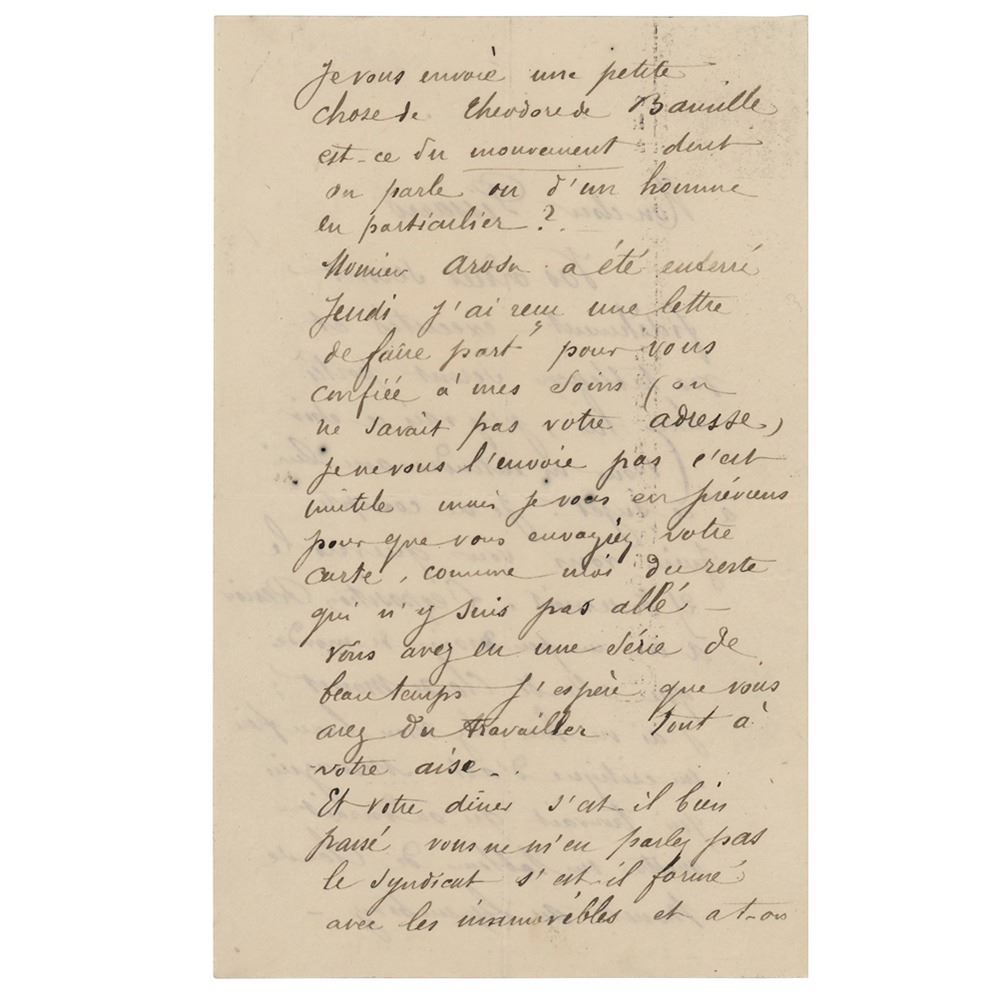 Je vous envoie une petite
chose de Théodore de Banville
est-ce du mouvement dont
on parle ou d'un homme
en particulier ?
Monsieur Arosa a été enterré
Jeudi j'ai reçu une lettre
de faire part pour vous
confiée à mes soins (on
ne savait pas votre adresse)
je ne vous l'envoie pas c'est
inutile mais je vous en préviens
pour que vous envoyiez votre
carte, comme moi du reste
qui n'y suis pas allé —
Vous avez eu une série de
beau temps J'espère que vous
avez du travailler tout à
votre aise.
Et votre diner s'est-il bien
passé vous ne m'en parlez pas
le syndicat s'est-il formé
avec les et a t-on